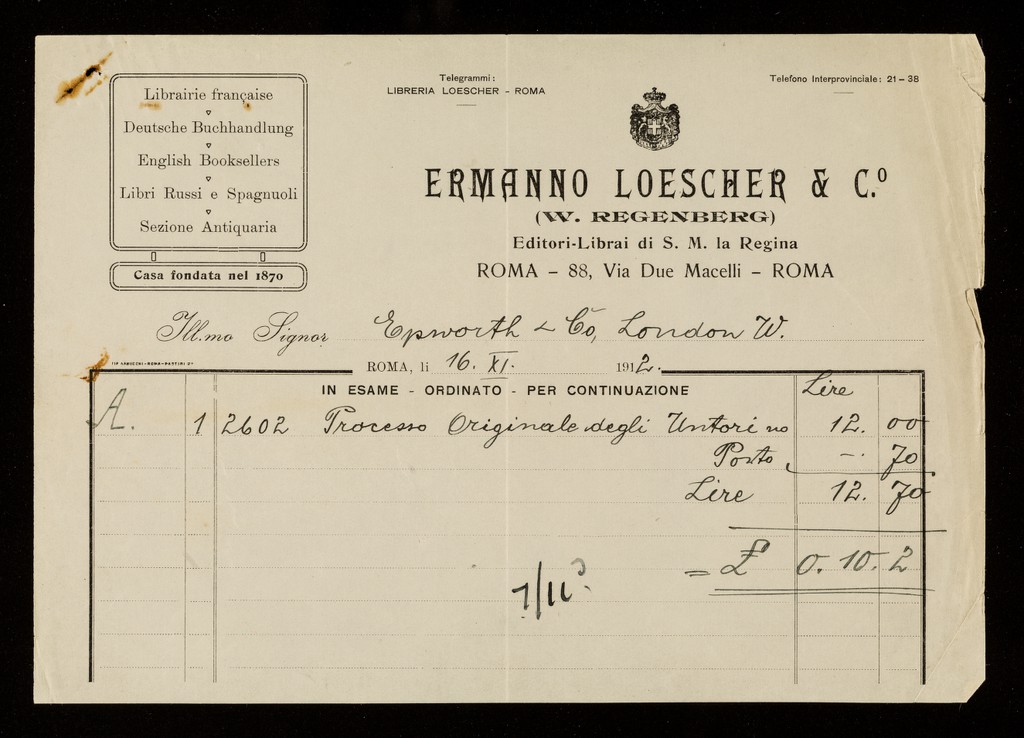 Librairie française
Deutsche Buchhandlung
English Booksellers
Libri Russi e Spagnuoli
Sezione Antiquaria
Casa fondata nel 1870
Telegrammi:
LIBRERIA LOESCHER - ROMA
Telefono Interprovinciale: 21-38
ERMANNO LOESCHER & C.º
(W. REGENBERG)
Editori-Librai di S. M. la Regina
ROMA - 88, Via Due Macelli - ROMA
Ill.mo Signor Epworth & Co, London W.
ROMA, li 16. XI. 1912.
IN ESAME - ORDINATO - PER CONTINUAZIONE Lire
A. 1 2602 Processo Originale degli Untori 12. 00
Porto - 70
Lire 12. 70
= £ 0. 10. 2